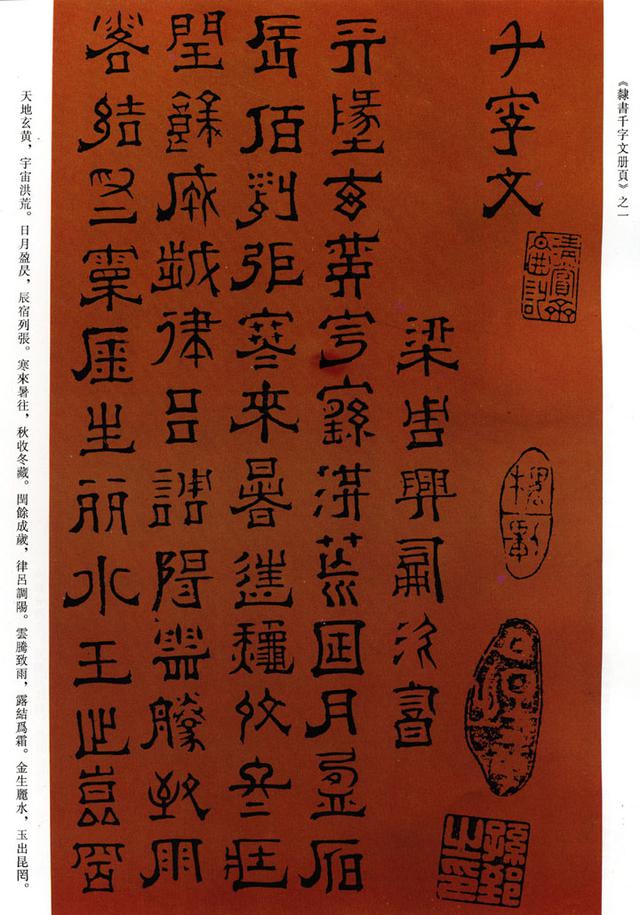 《隸書千字文册頁》之一
千字文
梁周興嗣次韻
天墬玄黃宇宙洪荒日月盈昃
辰宿列張寒來暑往秋收冬藏
閏餘成歲律呂調陽雲騰致雨
露結爲霜金生丽水玉出崑岡
天地玄黄，宇宙洪荒。日月盈昃，辰宿列張。寒來暑往，秋收冬藏。閏餘成歲，律呂調陽。雲騰致雨，露結爲霜。金生麗水，玉出昆罔。